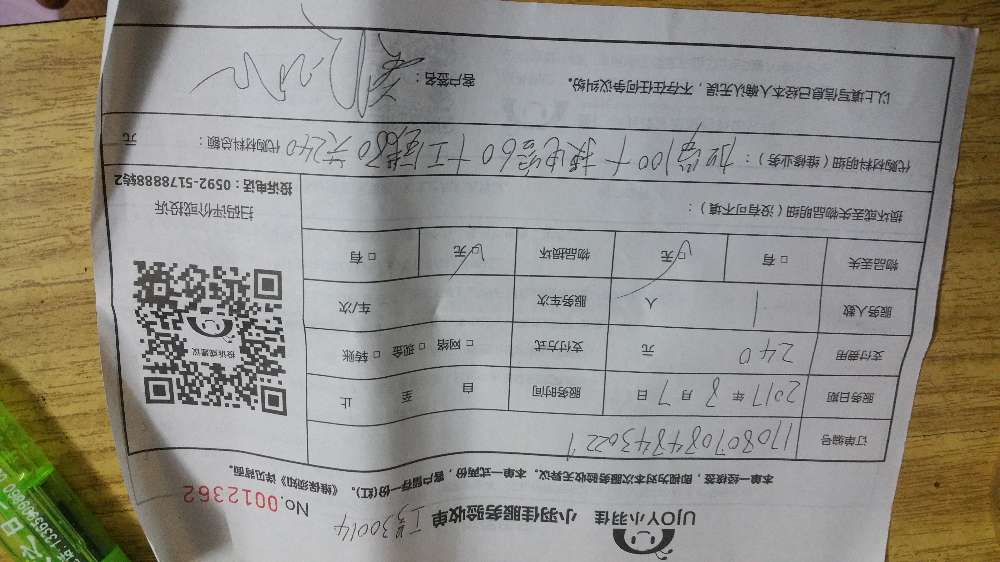 UJOY小羽佳 小羽佳服务验收单 工号30014
No.0012362
本单一经核签,即视为对本次服务验收无异议。本单一式两份,客户留存一份(红)。《维保须知》详见背面。
订单编号 17080708484302
服务日期 2017年8月7日 服务时间 自 至 止
支付费用 240 元 支付方式 □网络 □现金 □转账
服务人数 1 人 服务车次 车/次
物品丢失 □有 □无 物品损坏 □无 □有
投诉或建议
扫码评价或投诉
投诉电话:0592-5178888转2
损坏或丢失物品明细(没有可不填):
代购材料明细(维修业务): 加氟100+换电容60+工费80共240 代购材料总额: 元
以上填写信息已经本人确认无误,不存在任何争议纠纷。 客户签名: